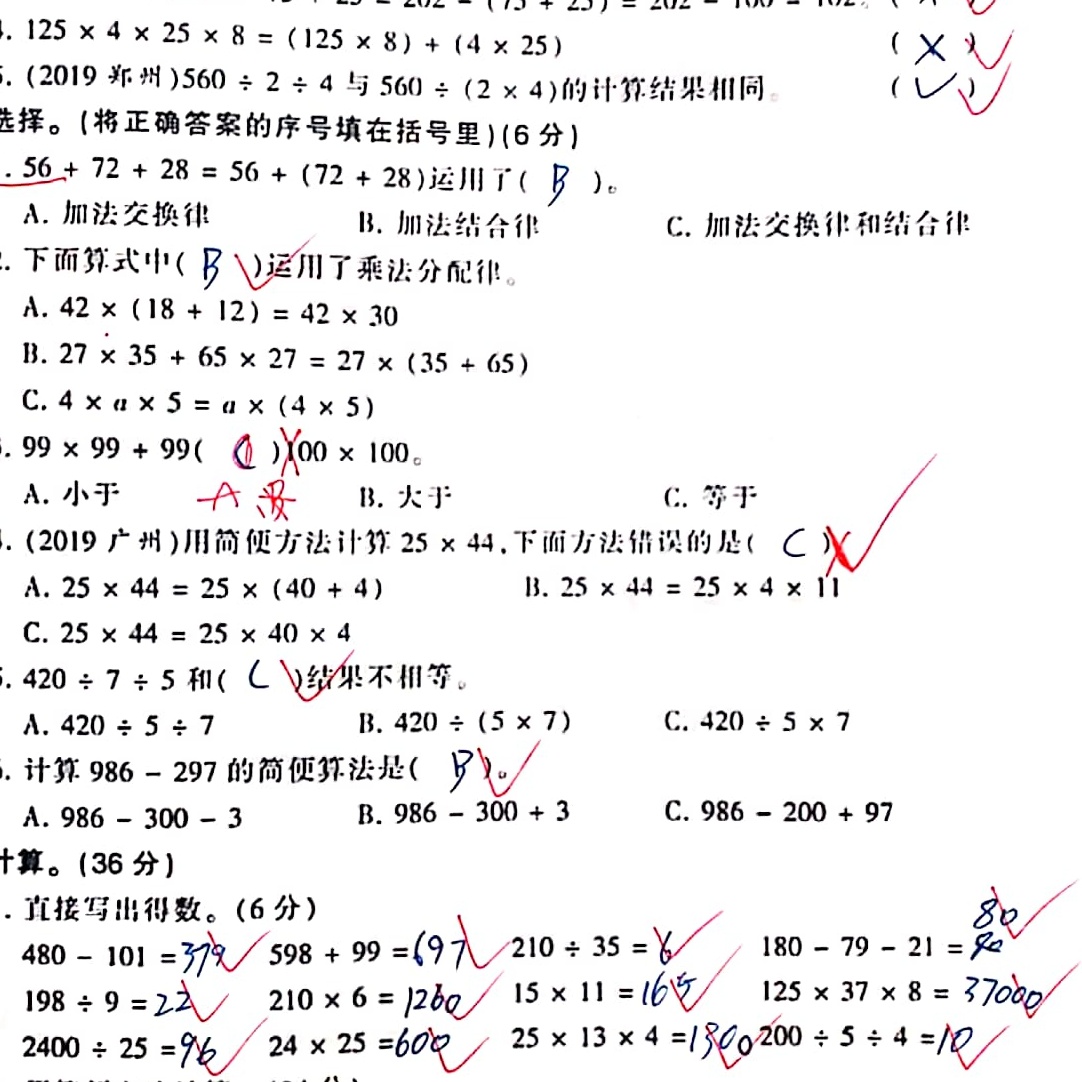 . 125 × 4 × 25 × 8 = (125 × 8) + (4 × 25) ( X )
. (2019 郑州)560 ÷ 2 ÷ 4 与 560 ÷ (2 × 4)的计算结果相同。 ( ✓ )
选择。(将正确答案的序号填在括号里)(6 分)
. 56 + 72 + 28 = 56 + (72 + 28)运用了( B )。
A. 加法交换律 B. 加法结合律 C. 加法交换律和结合律
. 下面算式中( B )运用了乘法分配律。
A. 42 × (18 + 12) = 42 × 30
B. 27 × 35 + 65 × 27 = 27 × (35 + 65)
C. 4 × a × 5 = a × (4 × 5)
. 99 × 99 + 99( C )100 × 100。
A. 小于 B. 大于 C. 等于
A
. (2019 广州)用简便方法计算 25 × 44,下面方法错误的是( C )
A. 25 × 44 = 25 × (40 + 4) B. 25 × 44 = 25 × 4 × 11
C. 25 × 44 = 25 × 40 × 4
. 420 ÷ 7 ÷ 5 和( C )结果不相等。
A. 420 ÷ 5 ÷ 7 B. 420 ÷ (5 × 7) C. 420 ÷ 5 × 7
. 计算 986 − 297 的简便算法是( B )。
A. 986 − 300 − 3 B. 986 − 300 + 3 C. 986 − 200 + 97
计算。(36 分)
. 直接写出得数。(6 分)
80
480 − 101 = 379 598 + 99 = 697 210 ÷ 35 = 6 180 − 79 − 21 =
198 ÷ 9 = 22 210 × 6 = 1260 15 × 11 = 165 125 × 37 × 8 = 37000
2400 ÷ 25 = 96 24 × 25 = 600 25 × 13 × 4 = 1300 200 ÷ 5 ÷ 4 = 10